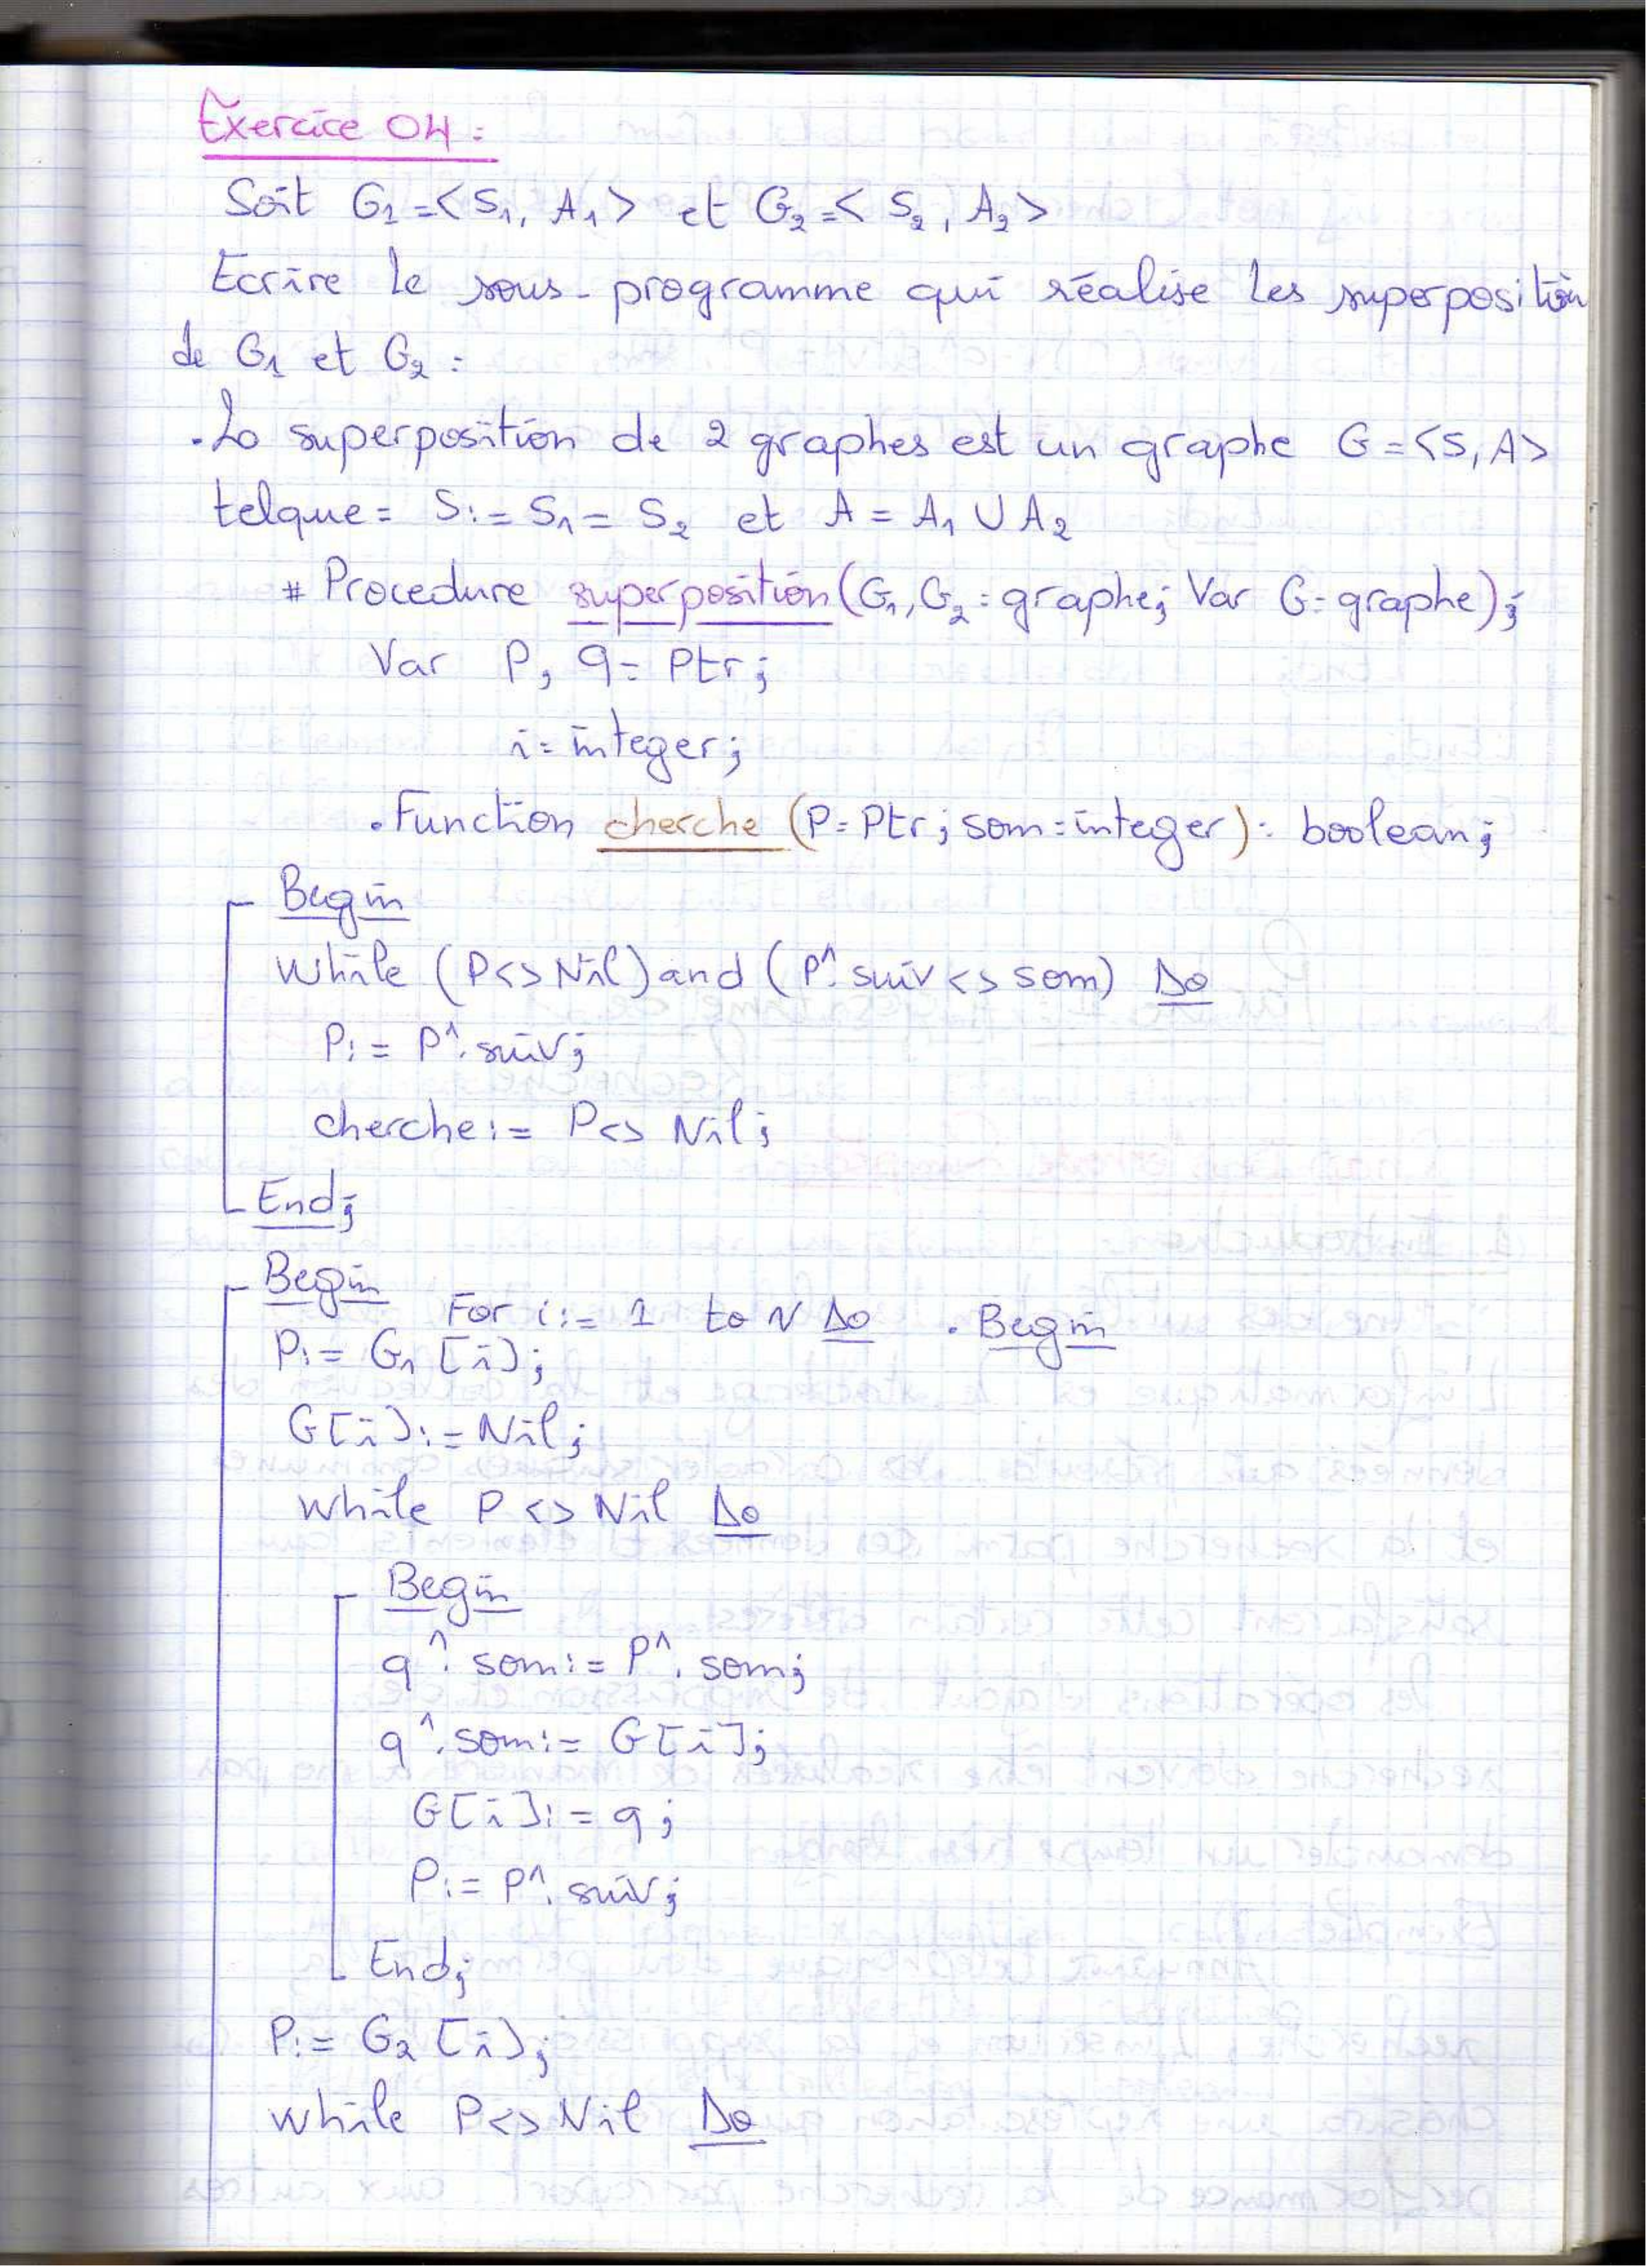 Exercice 04 :
Soit G1 = < S1, A1 > et G2 = < S2, A2 >
Ecrire le sous-programme qui réalise les superposition
de G1 et G2 :
. La superposition de 2 graphes est un graphe G = <S, A>
telque = S := S1 = S2 et A = A1 U A2
# Procedure superposition (G1, G2 : graphe; Var G : graphe);
Var P, q = Ptr;
i = integer;
. Function cherche (P = Ptr; som = integer) : boolean;
Begin
While (P <> Nil) and (P^. suiv <> som) Do
P := P^. suiv;
cherche := P <> Nil;
End;
Begin
For i := 1 to N Do . Begin
P := G1 [i];
G[i] := Nil;
While P <> Nil Do
Begin
q^. som := P^. som;
q^. som := G[i];
G[i] := q;
P := P^. suiv;
End;
P := G2 [i];
While P <> Nil Do